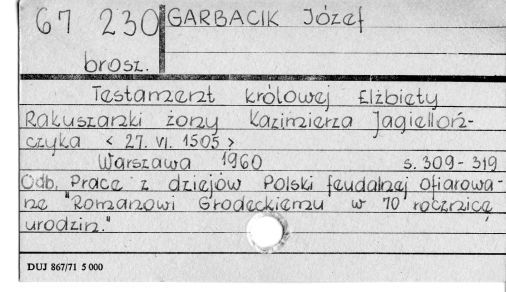 67 230 GARBACIK Józef
brosz.
Testament królowej Elżbiety
Rakuszanki żony Kazimierza Jagielloń-
czyka < 27. VI. 1505 >
Warszawa 1960 s. 309-319
Odb. Prace z dziejów Polski feudalnej ofiarowa-
ne "Romanowi Grodeckiemu w 70 rocznicę
urodzin."
DUJ 867/71 5 000